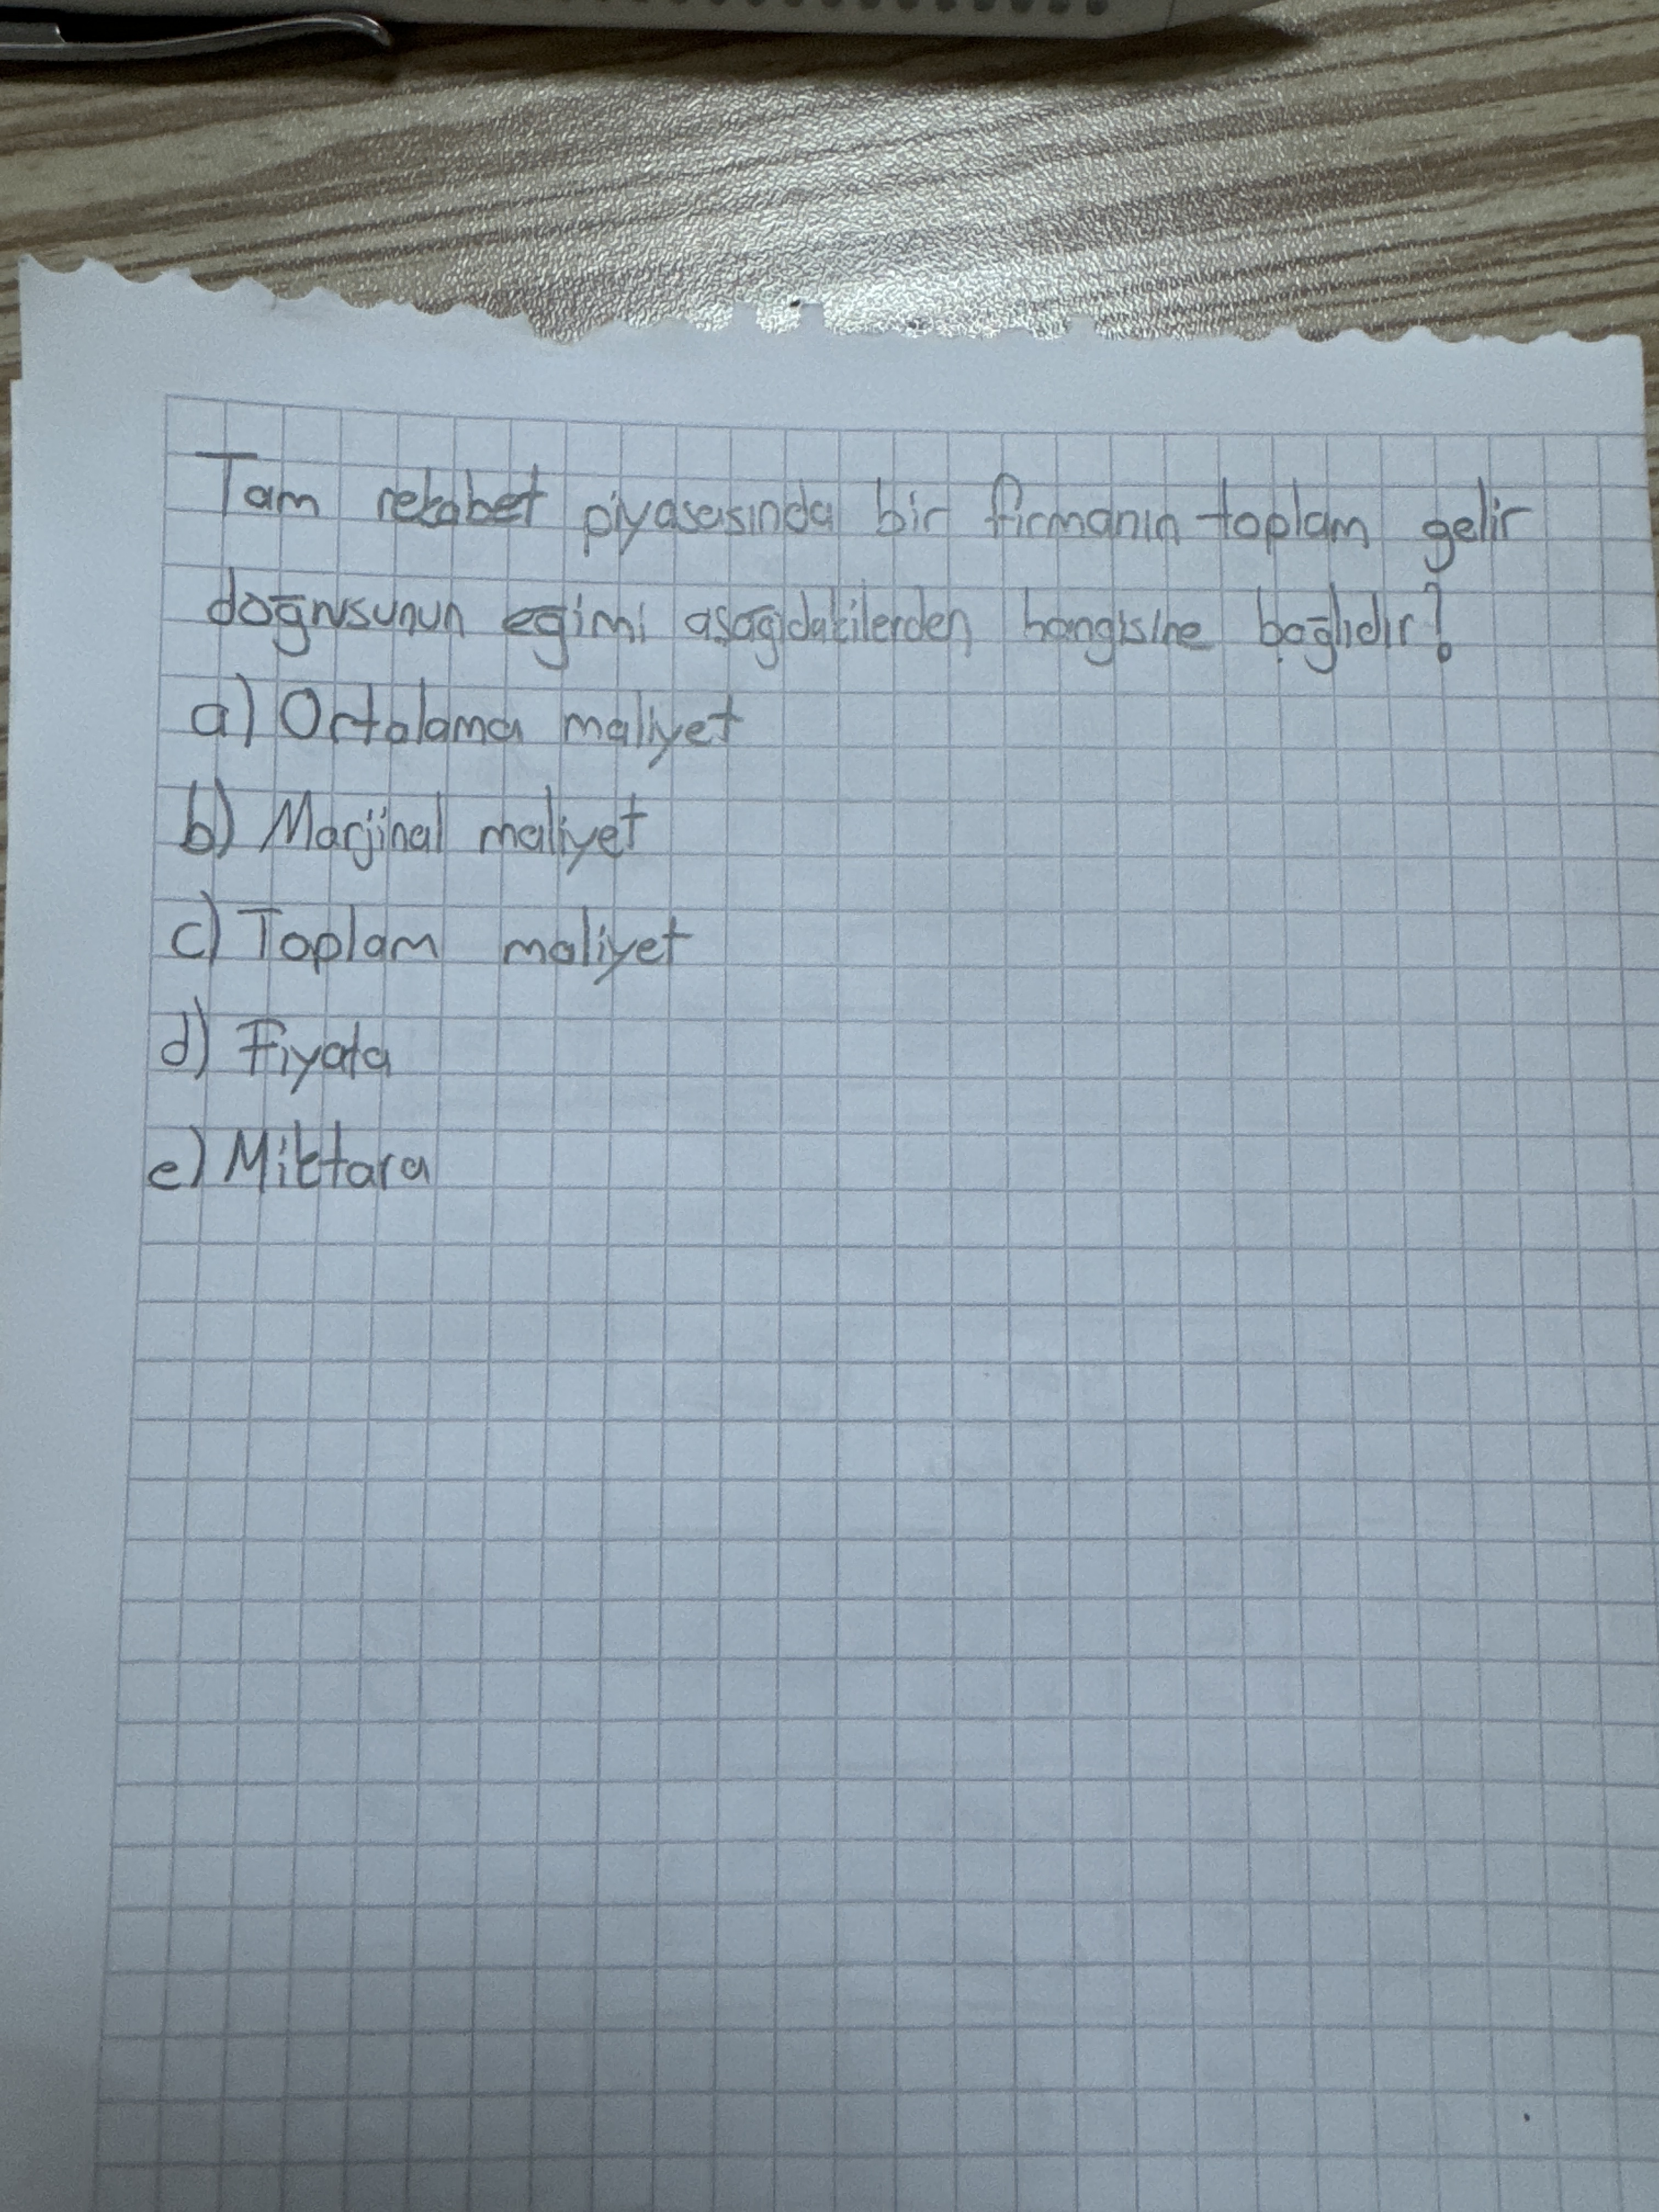 Tam rekabet piyasasında bir firmanın toplam gelir
doğrusunun eğimi aşağıdakilerden hangisine bağlıdır?
a) Ortalama maliyet
b) Marjinal maliyet
c) Toplam maliyet
d) Fiyata
e) Miktara